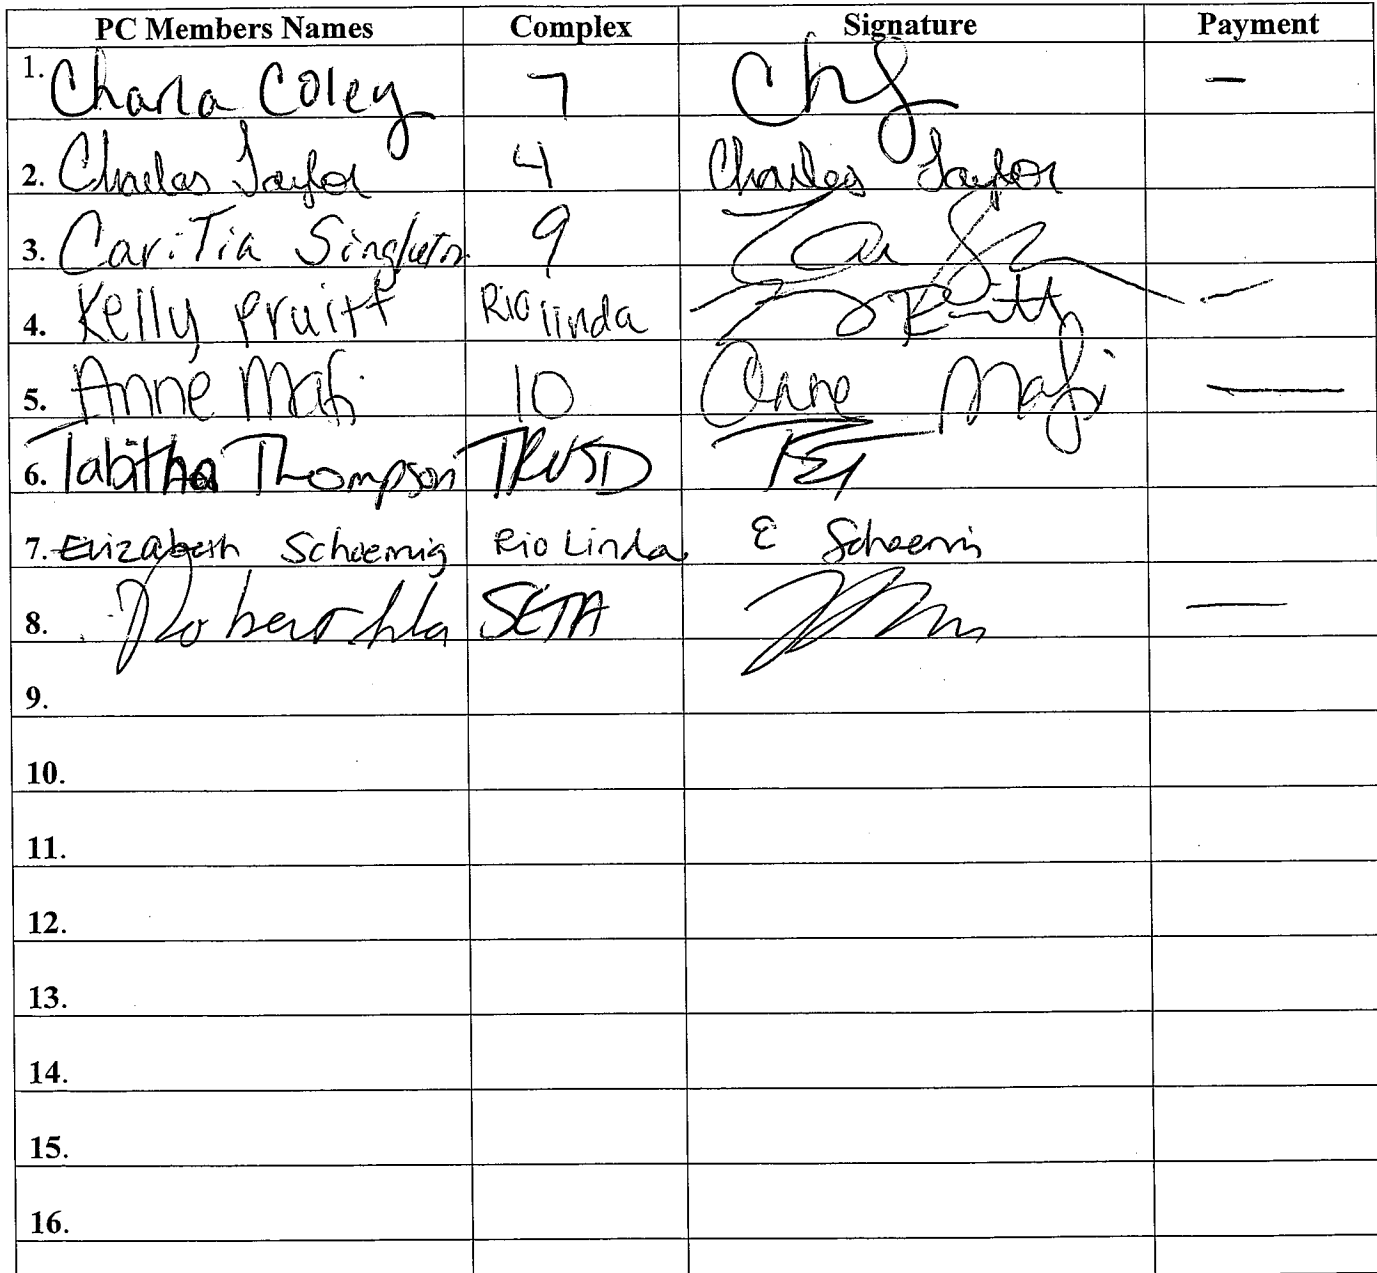 PC Members Names Complex Signature Payment
1. Charla Coley 7 —
2. Charles Taylor 4 Charles Taylor
3. Cari Tia Singleton 9
4. Kelly Pruitt Rio linda Pruitt —
5. Anne Mafi 10 Anne Mafi —
6. Tabitha Thompson TRUSD
7. Elizabeth Schoemig Rio Linda E Schoemi
8. SETA —
9.
10.
11.
12.
13.
14.
15.
16.